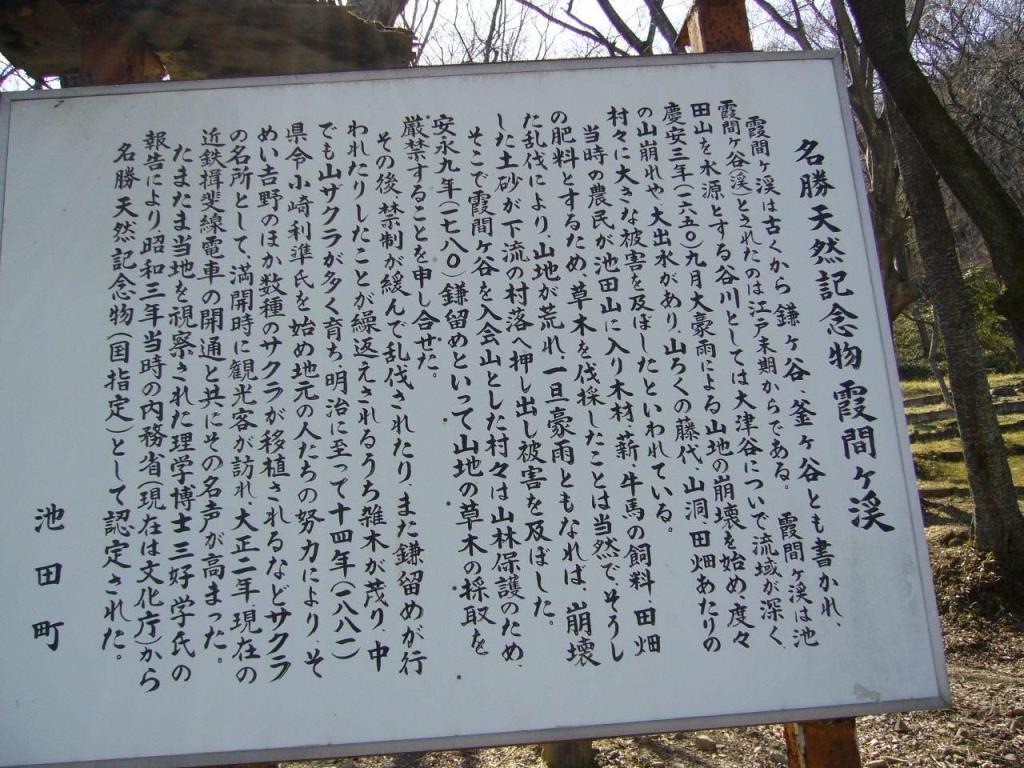 名勝天然記念物 霞間ヶ渓
霞間ヶ渓は古くから 鎌ヶ谷、釜ヶ谷とも書かれ、
霞間ヶ谷(渓)とされたのは江戸末期からである。 霞間ヶ渓は池
田山を水源とする谷川としては大津谷について流域が深く、
慶安三年(一六五〇)九月大豪雨による山地の崩壊を始め、度々
の山崩れや、大出水があり、山ろくの藤代、山洞、田畑あたりの
村々に大きな被害を及ぼしたといわれている。
当時の農民が池田山に入り木材、薪、牛馬の飼料、田畑
の肥料とするため、草木を伐採したことは当然で、そうし
た乱伐により、山地が荒れ、一旦豪雨ともなれば、崩壊
した土砂が下流の村落へ押し出し被害を及ぼした。
そこで霞間ヶ谷を入会山とした村々は山林保護のため、
安永九年(一七八〇)鎌留めといって山地の草木の採取を
厳禁することを申し合せた。
その後、禁制が緩んで乱伐されたり、また鎌留めが行
われたりしたことが繰返えされるうち雑木が茂り、中
でも山ザクラが多く育ち、明治に至って十四年(一八八一)
県令小崎利準氏を始め地元の人たちの努力により、そ
めい吉野のほか数種のサクラが移植されるなどサクラ
の名所として、満開時に観光客が訪れ、大正二年、現在の
近鉄揖斐線電車の開通と共にその名声が高まった。
たまたま当地を視察された理学博士三好学氏の
報告により、昭和三年当時の内務省(現在は文化庁)から
名勝天然記念物(国指定)として認定された。
池田町